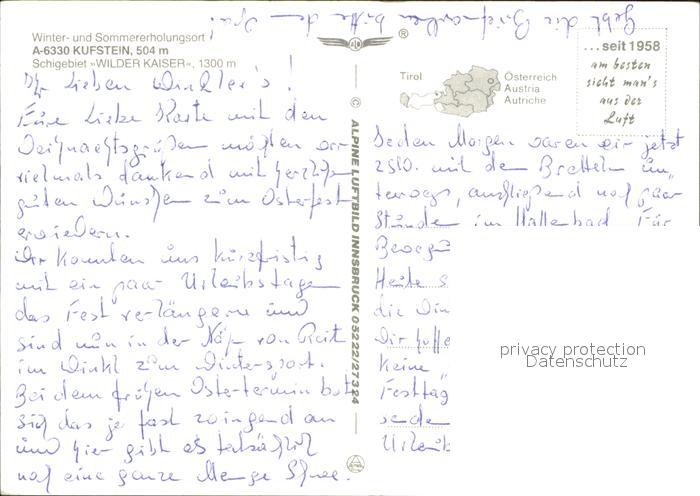 Gebt die Briefmarken bitte dem Opa!
Winter- und Sommererholungsort
A-6330 KUFSTEIN, 504 m
Schigebiet »WILDER KAISER«, 1300 m
®
...seit 1958
am besten
sieht man's
aus der
Luft
Tirol
Österreich
Austria
Autriche
© ALPINE LUFTBILD INNSBRUCK 05222/27324
Ihr lieben Winkler's!
Für die Karte mit den
Weihnachtsgrüßen möchten wir
vielmals dankend mit herzlichen
guten Wünschen zum Osterfest
erwiedern.
Wir konnten uns kurzfristig
mit ein paar Urlaubstagen
das Fest verlängern und
sind nun in der Näh von Reit
im Winkl zum Wintersport.
Bei dem frühen Ostertermin bot
sich das ja fast zwingend an
und hier gibt es tatsächlich
noch eine ganze Menge Schnee.
Jeden Morgen waren wir jetzt
2 Std. mit den Bretteln un-
terwegs, anschließend noch paar
Stunden im Hallenbad. Für
Bewegu
Heute s
die Win
Wir hoffe
keine
Festtag
sende
Urlaub
privacy protection
Datenschutz